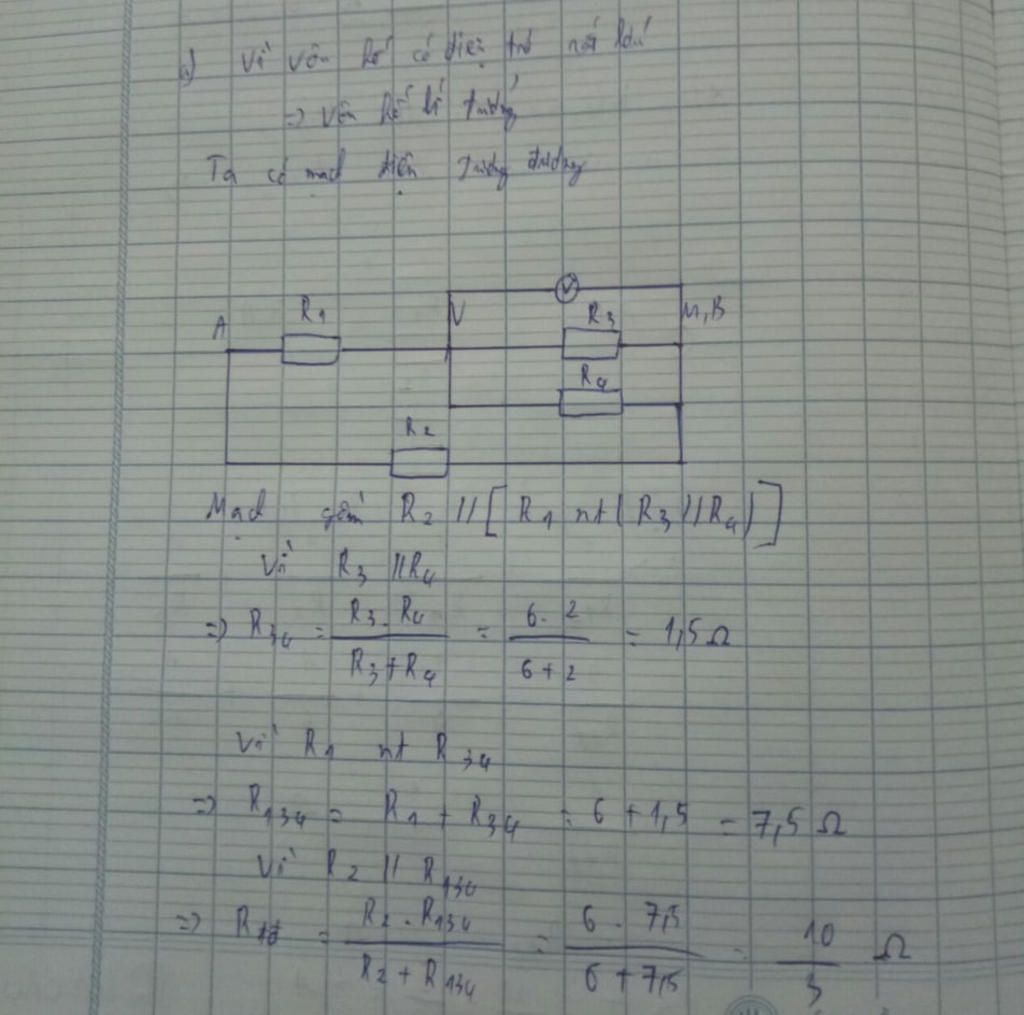 a) Vì vôn kế có điện trở rất lớn
=> Vôn kế lí tưởng
Ta có mạch điện tương đương
R1
A
N
V
M,B
R3
R4
R2
Mạch gồm R2 // [ R1 nt ( R3 // R4 ) ]
Vì R3 // R4
=> R34 = R3 . R4 / R3 + R4 = 6 . 2 / 6 + 2 = 1,5 Ω
Vì R1 nt R34
=> R134 = R1 + R34 = 6 + 1,5 = 7,5 Ω
Vì R2 // R134
=> Rtđ = R2 . R134 / R2 + R134 = 6 . 7,5 / 6 + 7,5 = 10 / 3 Ω